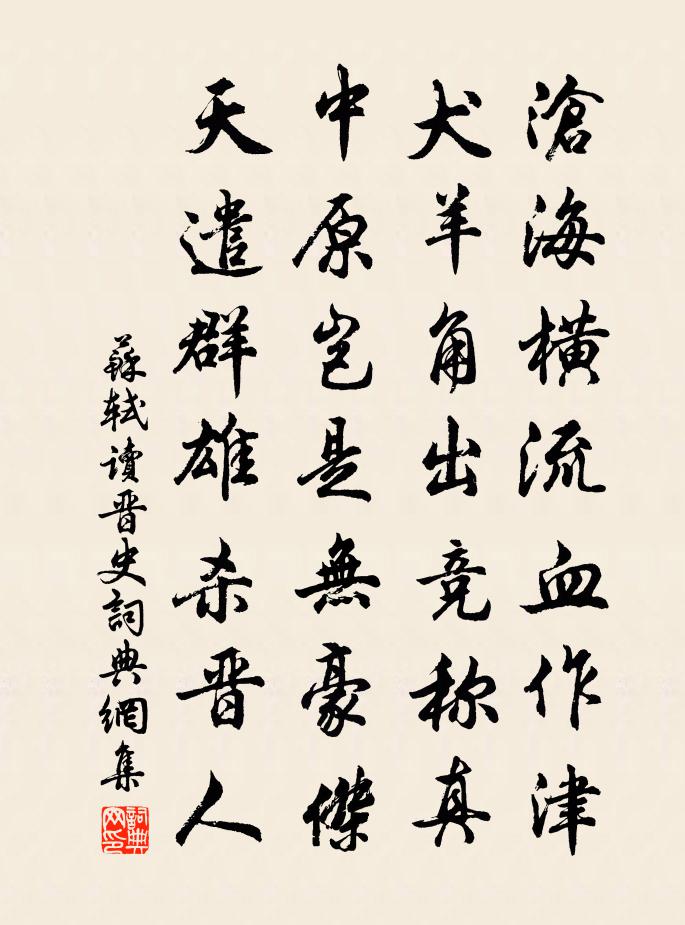 滄海橫流血作津
犬羊角出竞称真
中原岂是無豪傑
天遣群雄杀晋人
蘇軾讀晋史詞典網集
詞典网印